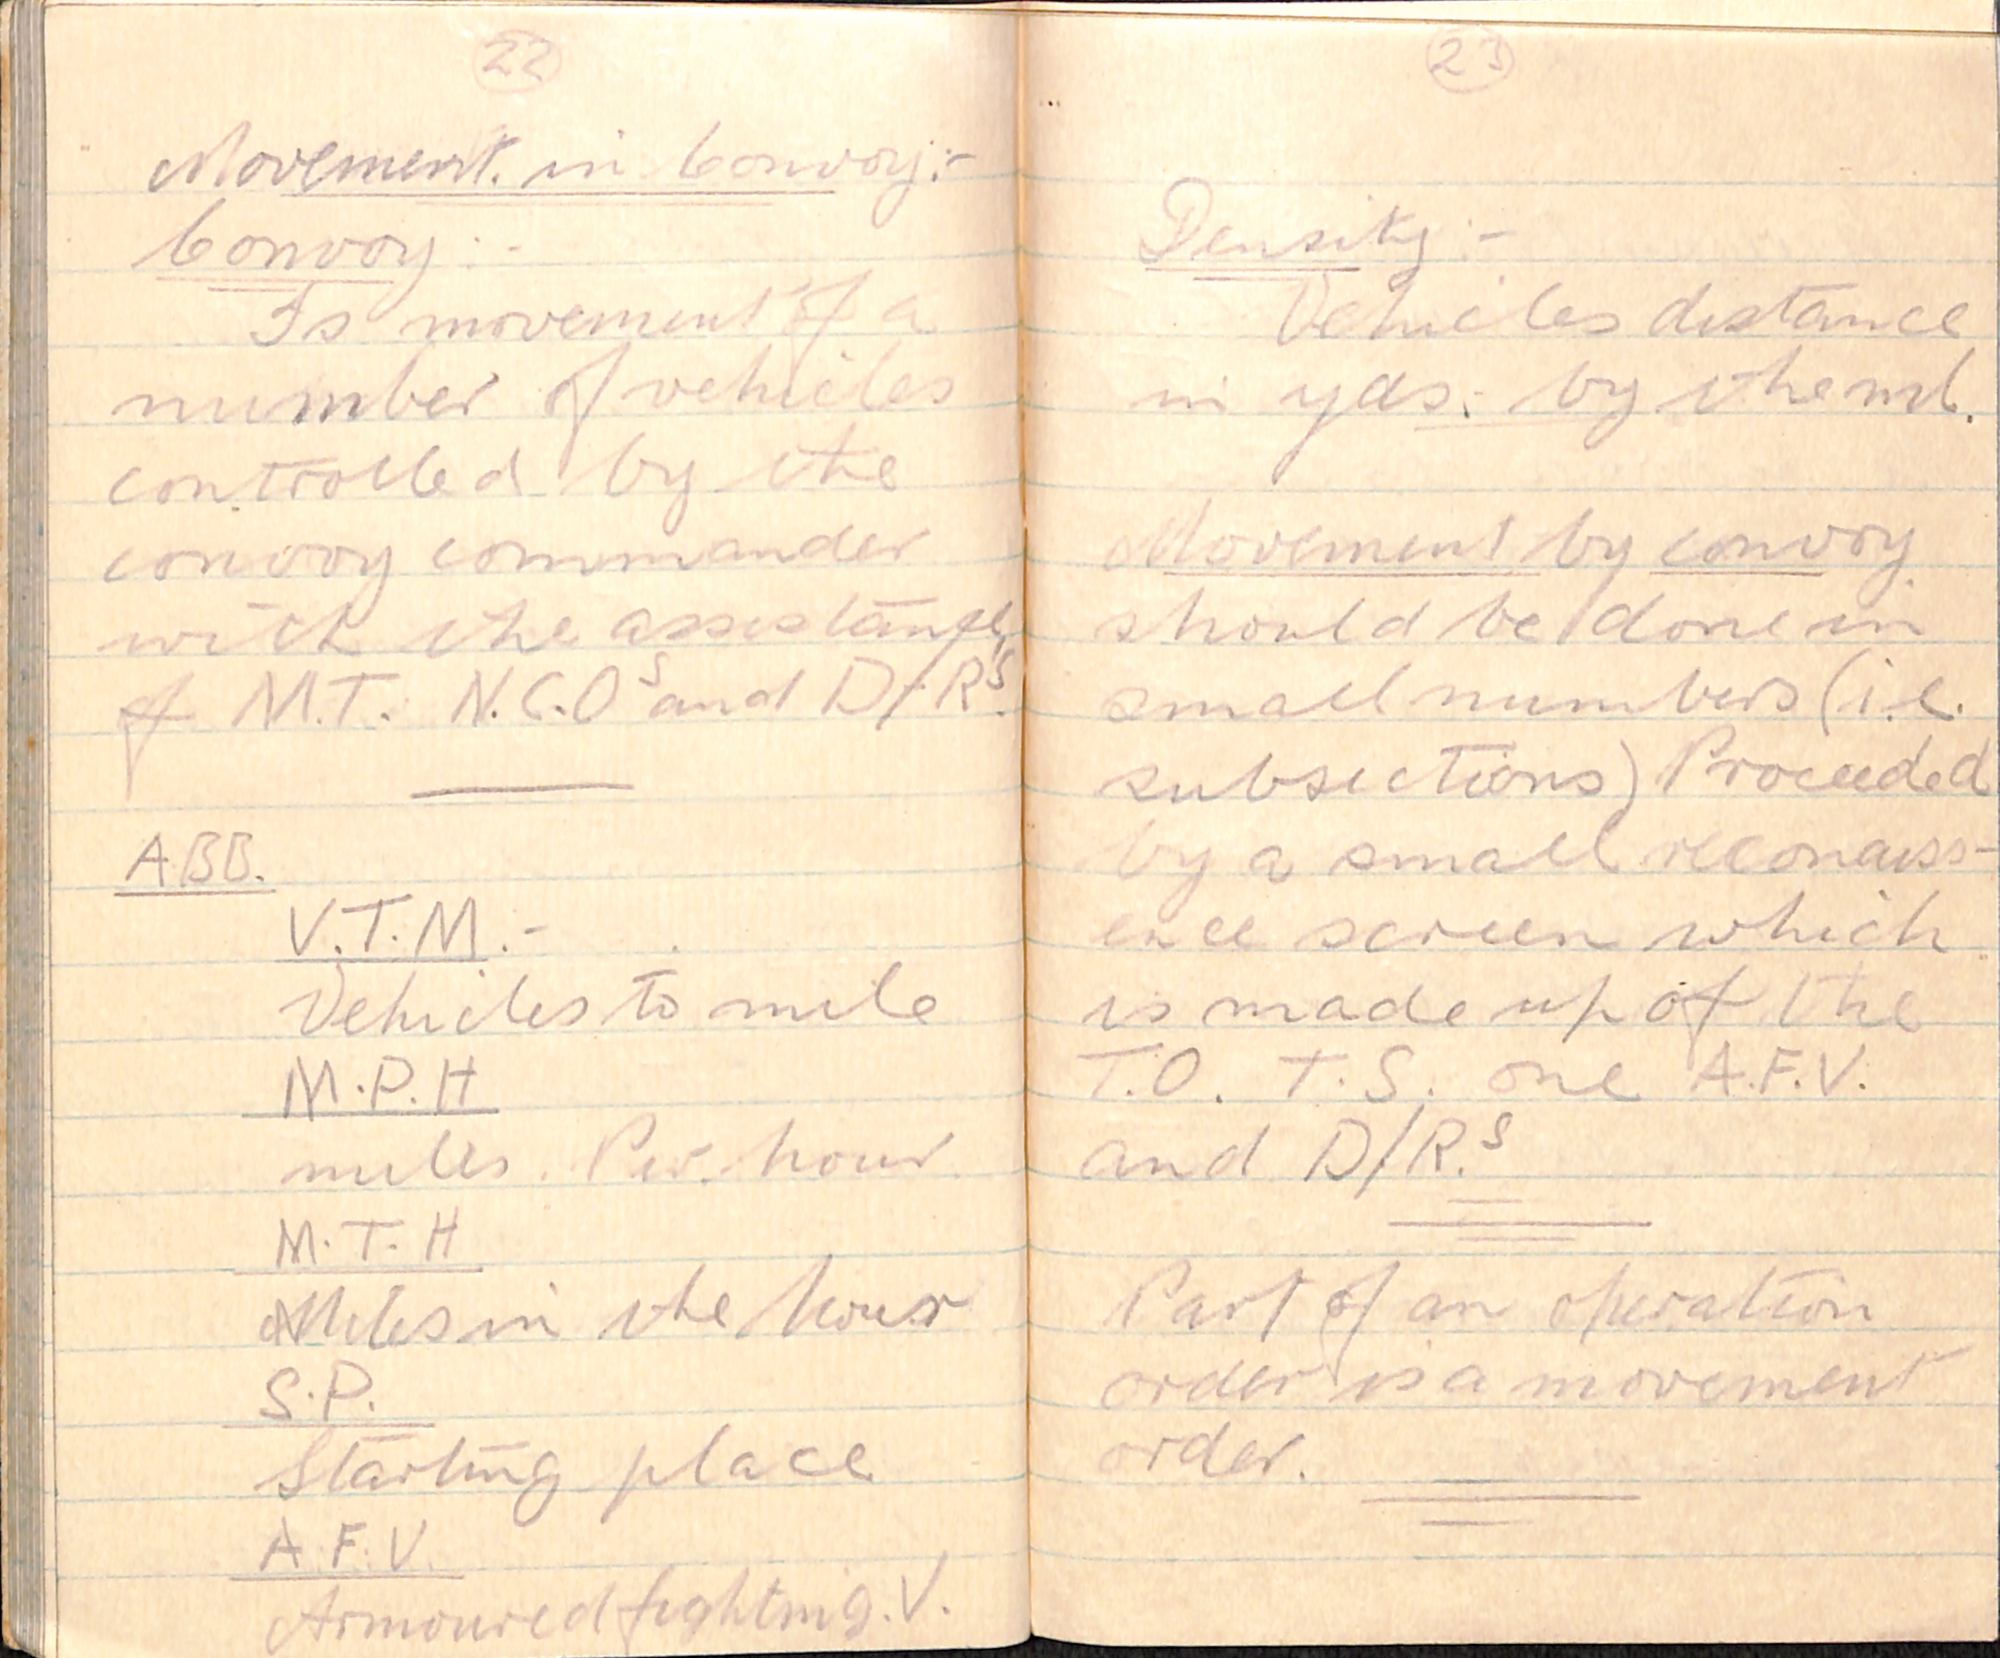 22
Movement. in Convoy:-
Convoy:-
Is movement of a
number of vehicles
controlled by the
convoy commander
with the assistance
of M.T. N.C.O^s and D/R^s.
ABB.
V.T.M.-
Vehicles to mile
M.P.H
miles. Per. hour
M.T.H
Miles in the hour
S.P.
Starting place
A.F.V.
Armoured fighting.V.
23
Density:-
Vehicles distance
in yds. by the ml.
Movement by convoy
should be done in
small numbers (i.e.
subsections) Proceeded
by a small reconaiss-
ence screen which
is made up of the
T.O. T.S. one A.F.V.
and D/R.^s
Part of an operation
order is a movement
order.